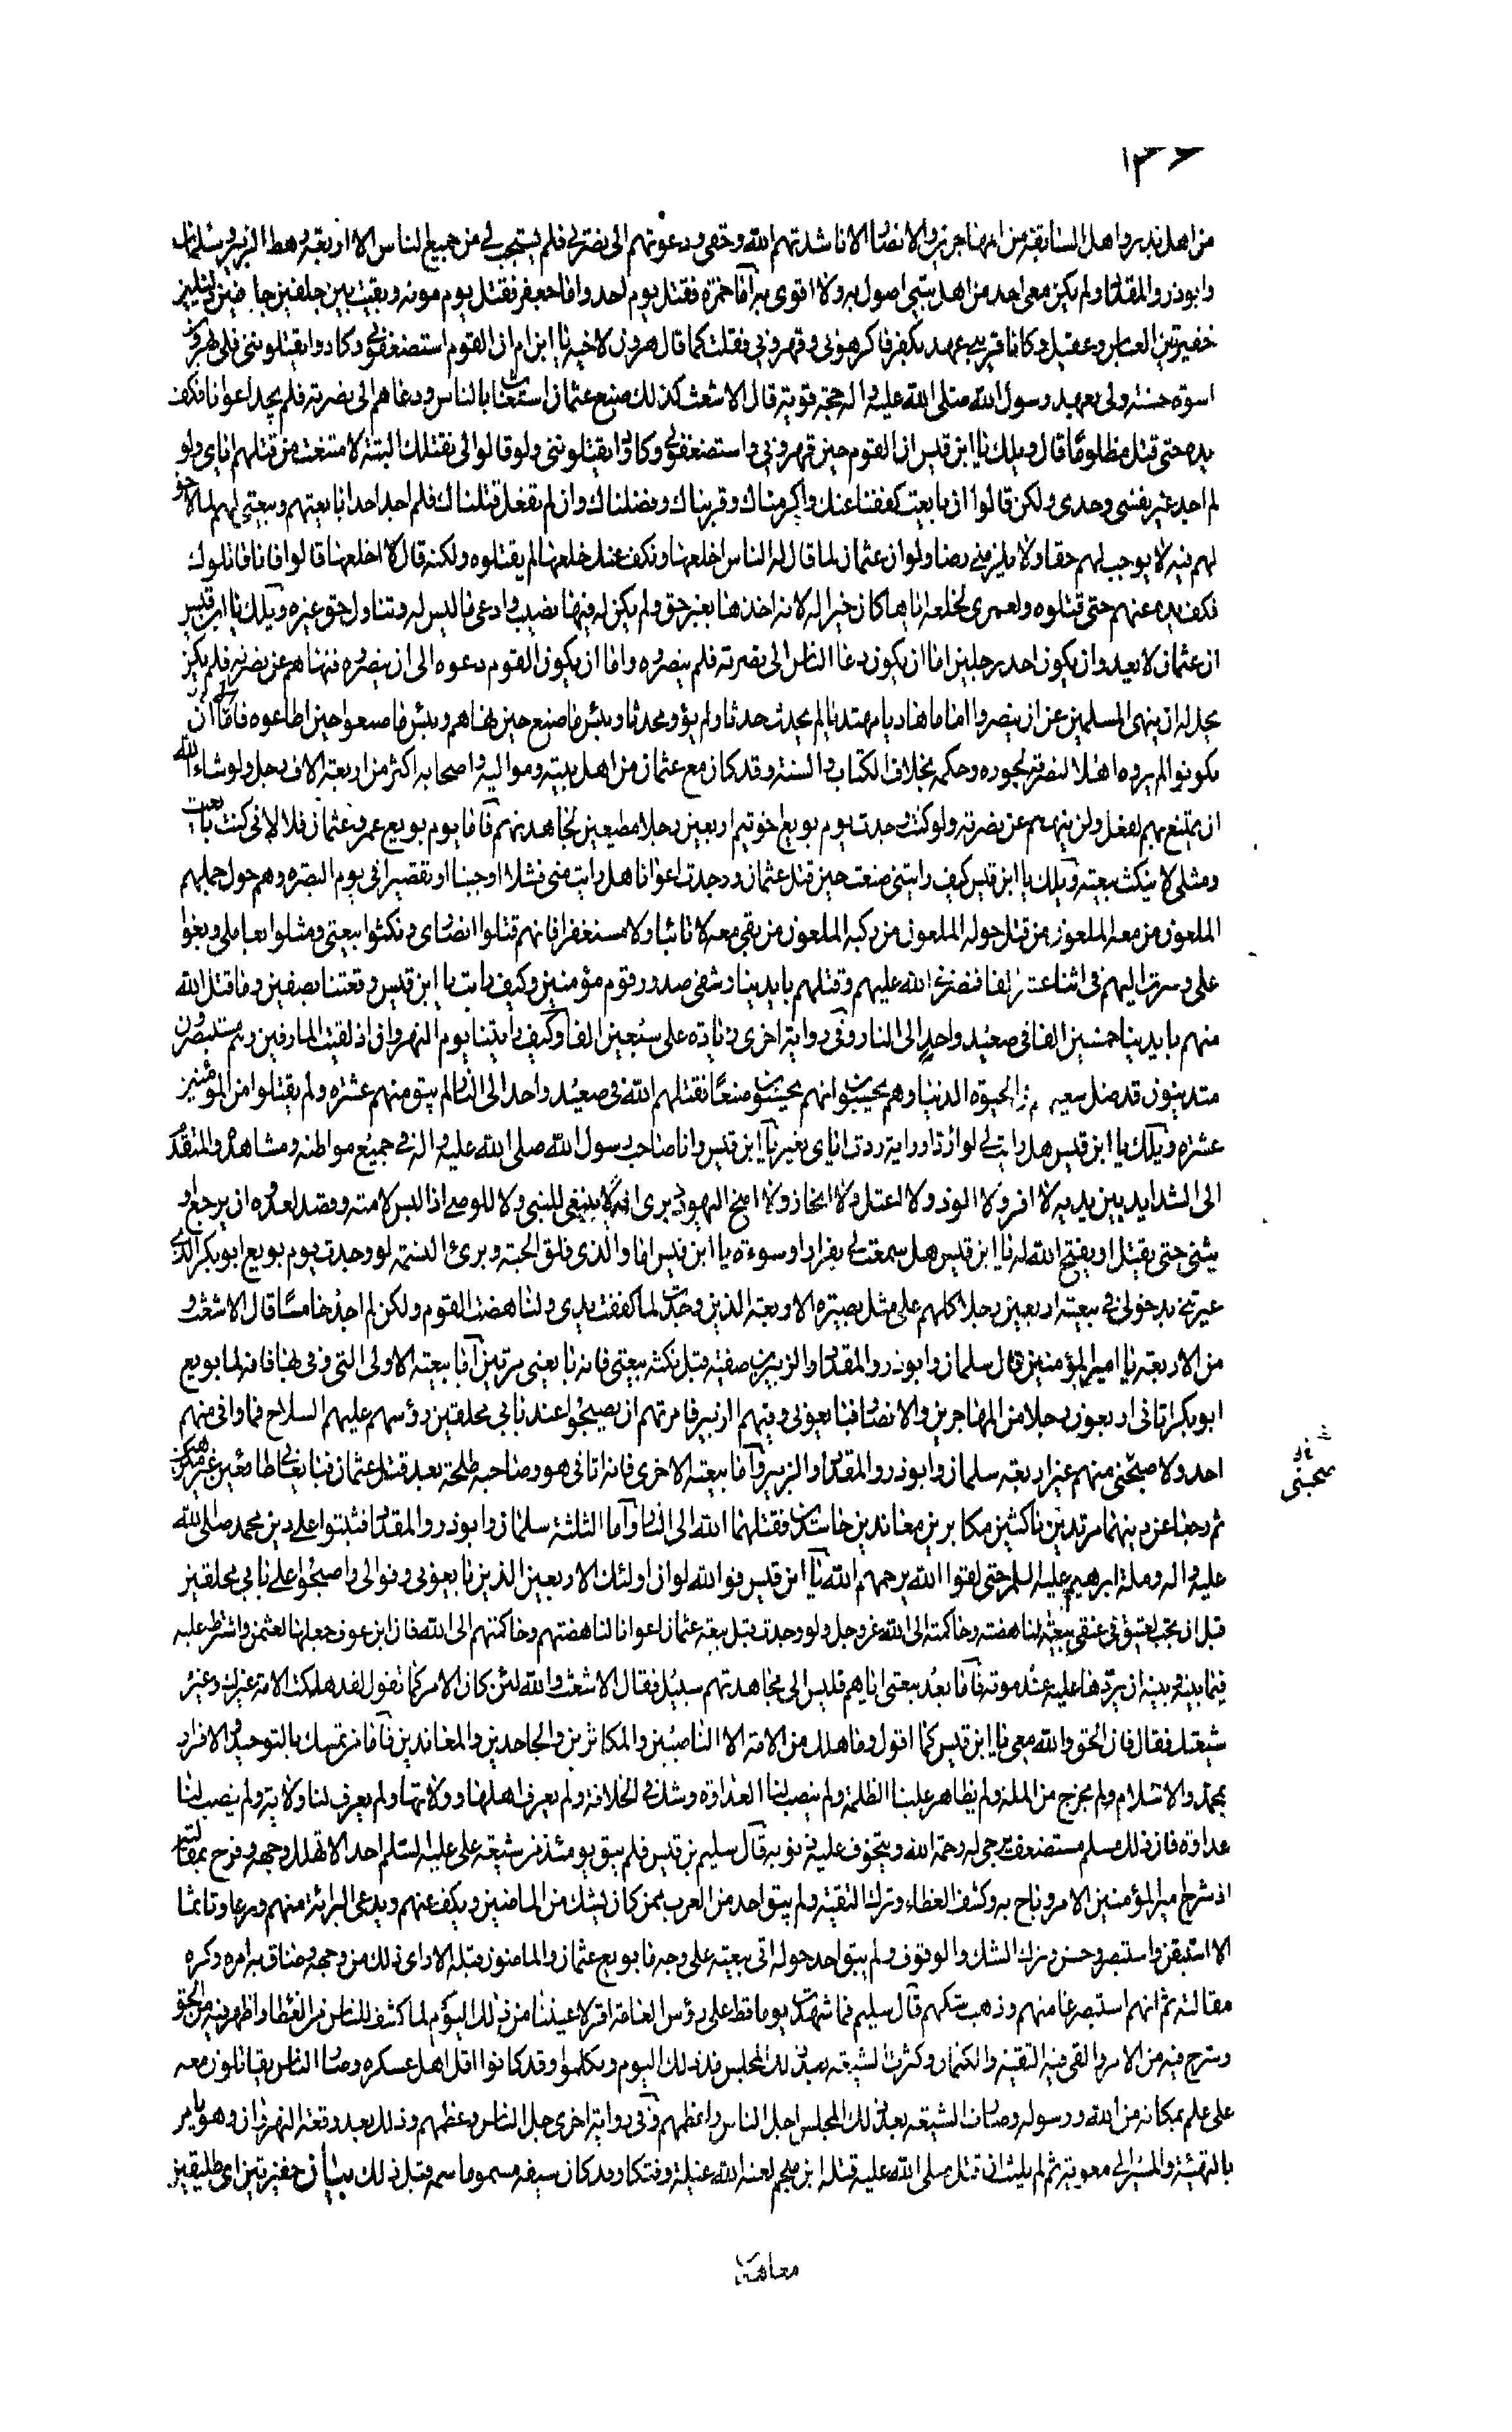 ١٣٦
من اهل بدر واهل السابقة من المهاجرين والانصار الا ناشدتهم الله وحقى ودعوتهم الى نصرتى فلم يستجب لى من جميع الناس الا اربعة رهط الزبير وسلمان
وابوذر والمقداد ولم يكن معى احد من اهل بيتى اصول به ولا اقوى به اما حمزة فقتل يوم احد واما جعفر فقتل يوم موته وبقيت بين جلفين جافيين ذليلين
حقيرين العباس وعقيل وكانا قريبى عهد بكفر فاكرهونى وقهرونى فقلت كما قال هرون لاخيه يا ابن ام ان القوم استضعفونى وكادوا يقتلوننى فلى بهرون
اسوة حسنة ولى بعهد رسول الله صلى الله عليه واله حجة قوية قال الاشعث كذلك صنع عثمان استغاث بالناس ودعاهم الى نصرته فلم يجد اعوانا فكف
يده حتى قتل مظلوما قال ويلك يا ابن قيس ان القوم حين قهرونى واستضعفونى وكادوا يقتلوننى ولو قالوا لى نقتلك البتة لامتنعت من قتلهم اياى ولو
لم اجد غير نفسى وحدى ولكن قالوا ان بايعت كففنا عنك واكرمناك وقربناك وفضلناك وان لم تفعل قتلناك فلم اجد احدا بايعتهم وبيعتى لهم لما لا حق
لهم فيه لا يوجب لهم حقا ولا يلزمنى رضا ولو ان عثمان لما قال له الناس اخلعها ونكف عنك خلعها لم يقتلوه ولكنه قال لا اخلعها قالوا فانا قاتلوك
فكف يده عنهم حتى قتلوه ولعمرى لخلعه اياها كان خيرا له لانه اخذها بغير حق ولم يكن له فيها نصيب وادعى ما ليس له وتناول حق غيره ويلك يا ابن قيس
ان عثمان لا يعدو ان يكون احد رجلين اما ان يكون دعا الناس الى نصرته فلم ينصروه واما ان يكون القوم دعوه الى ان ينصروه فنهاهم عن نصرته فلم يكن
يحل له ان ينهى المسلمين عن ان ينصروا اماما هاديا مهتديا لم يحدث حدثا ولم يؤو محدثا وبئس ما صنع حين نهاهم وبئس ما صنعوا حين اطاعوه فاما ان
يكونوا لم يروه اهلا لنصرته لجوره وحكمه بخلاف الكتاب والسنة وقد كان مع عثمان من اهل بيته ومواليه واصحابه اكثر من اربعة الاف رجل ولو شاء الله
ان يمتنع بهم لفعل ولم ينههم عن نصرته ولو كنت وجدت يوم بويع اخو تيم اربعين رجلا مطيعين لجاهدتهم فاما يوم بويع عمر وعثمان فلا لانى كنت بايعت
ومثلى لا ينكث بيعته ويلك يا ابن قيس كيف رايتنى صنعت حين قتل عثمان ووجدت اعوانا هل رايت منى فشلا او جبنا او تقصيرا فى يوم البصرة وهم حول جملهم
الملعون من معه الملعون من قتل حوله الملعون من ركبه الملعون من بقى معه لا تائبا ولا مستغفرا فانهم قتلوا انصارى ونكثوا بيعتى ومثلوا بعاملى وبغوا
على وسرت اليهم فى اثنا عشر الفا فنصرنى الله عليهم وقتلهم بايدينا وشفى صدور قوم مؤمنين وكيف رايت يا ابن قيس وقعتنا بصفين وما قتل الله
منهم بايدينا خمسين الفا فى صعيد واحد الى النار وفى رواية اخرى زيادة على سبعين الفا وكيف رايتنا يوم النهروان اذ لقيت المارقين وهم مستبصرون
متدينون قد ضل سعيهم فى الحيوة الدنيا وهم يحسبون انهم يحسنون صنعا فقتلهم الله فى صعيد واحد الى النار لم يبق منهم عشرة ولم يقتلوا من المؤمنين
عشرة ويلك يا ابن قيس هل رايت لى لواء رد او راية ردت اياى تعير يا ابن قيس وانا صاحب رسول الله صلى الله عليه واله فى جميع مواطنه ومشاهده والمتقدم
الى الشدايد بين يديه لا افر ولا الوذ ولا اعتل ولا انحاز ولا امنح اليهود دبرى انه لا ينبغى للنبى ولا للوصى اذا لبس لامته وقصد لعدوه ان يرجع او
ينثنى حتى يقتل او يفتح الله له يا ابن قيس هل سمعت لى بفرار او سوءة يا ابن قيس اما والذى فلق الحبة وبرئ النسمة لو وجدت يوم بويع ابو بكر الذى
عيرتنى بدخولى فى بيعته اربعين رجلا كلهم على مثل بصيرة الاربعة الذين وجدت لما كففت يدى ولناهضت القوم ولكن لم اجد خامسا قال الاشعث و
من الاربعة يا امير المؤمنين قال سلمان وابوذر والمقداد والزبير بن صفية قبل نكثه بيعتى فانه بايعنى مرتين اما بيعته الاولى التى وفى بها فانه لما بويع
ابوبكر اتانى اربعون رجلا من المهاجرين والانصار فبايعونى وفيهم الزبير فامرتهم ان يصبحوا عند بابى محلقين رؤسهم عليهم السلاح فما وافى منهم
احد ولا صبحنى منهم غير اربعة سلمان وابوذر والمقداد والزبير واما بيعته الاخرى فانه اتانى هو وصاحبه طلحة بعد قتل عثمان فبايعانى طائعين غير مكرهين
ثم رجعا عن دينهما مرتدين ناكثين مكابرين معاندين حاسدين فقتلهما الله الى النار واما الثلثة سلمان وابوذر والمقداد فثبتوا على دين محمد صلى الله
عليه واله وملة ابرهيم عليه السلم حتى لقوا الله يرحمهم الله يا ابن قيس فوالله لو ان اولئك الاربعين الذين بايعونى وفوا لى واصبحوا على بابى محلقين
قبل ان تجب لعتيق فى عنقى بيعته لناهضته وحاكمته الى الله عز وجل ولو وجدت قبل بيعة عثمان اعوانا لناهضتهم وحاكمتهم الى الله فان ابن عوف جعلها لعثمن واشترط عليه
فيما بينه وبينه ان يردها عليه عند موته فاما بعد بيعتى اياهم فليس الى مجاهدتهم سبيل فقال الاشعث والله لئن كان الامر كما تقول لقد هلكت الامة غيرك وغير
شيعتك فقال فان الحق والله معى يا ابن قيس كما اقول وما هلك من الامة الا الناصبين والمكاثرين والجاحدين والمعاندين فاما من تمسك بالتوحيد والاقرار
بمحمد والاسلام ولم يخرج من الملة ولم يظاهر علينا الظلمة ولم ينصب لنا العداوة وشك فى الخلافة ولم يعرف اهلها وولاتها ولم يعرف لنا ولاية ولم ينصب لنا
عداوة فان ذلك مسلم مستضعف يرجى له رحمة الله ويتخوف عليه ذنوبه قال سليم بن قيس فلم يبق يومئذ من شيعة على عليه السلم احد الا تهلل وجهه وفرح بمقالته
اذ شرح امير المؤمنين الامر وباح به وكشف الغطاء وترك التقية ولم يبق احد من العرب ممن كان يشك من الماضين ويكف عنهم ويدع البرائة منهم ورعا وتاثما
الا استيقن واستبصر وحسن وترك الشك والوقوف ولم يبق احد حوله اتى بيعته على وجه ما بويع عثمان والماضون قبله الا راى ذلك من وجهه وضاق به امره وكره
مقالته ثم انهم استبصر عامتهم وذهب شكهم قال سليم فما شهدت يوما قط على رؤس العامة اقر لاعيننا من ذلك اليوم لما كشف للناس من الغطاء واظهر فيه من الحق
وشرح فيه من الامر والقى فيه التقية والكتمان وكثرت الشيعة بعد ذلك المجلس مذ ذلك اليوم وتكلموا وقد كانوا اقل اهل عسكره وصار الناس يقاتلون معه
على علم بمكانه من الله ورسوله وصارت الشيعة بعد ذلك المجلس اجل الناس واعظمهم وفى رواية اخرى جل الناس وعظمهم وذلك بعد وقعة النهروان وهو يامر
بالتهيئة والمسير الى معوية ثم لم يلبث ان قتل صلى الله عليه قتله ابن ملجم لعنه الله غيلة وفتكا وقد كان سيفه مسموما سمه قبل ذلك بيان خفيرتين اى طليقين
صحبنى
معاهدين